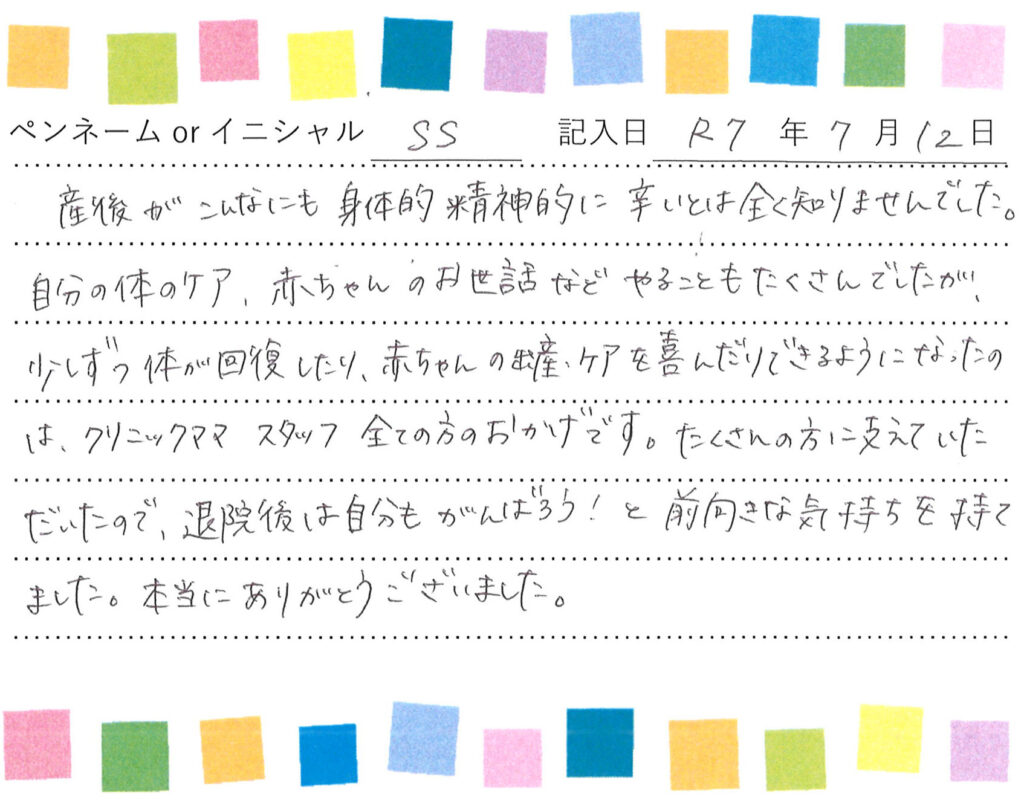 ペンネーム or イニシャル SS 記入日 R7 年 7 月 12 日
産後がこんなにも身体的精神的に辛いとは全く知りませんでした。
自分の体のケア、赤ちゃんのお世話などやることもたくさんでしたが、
少しずつ体が回復したり、赤ちゃんの出産・ケアを喜んだりできるようになったの
は、クリニックママ スタッフ全ての方のおかげです。たくさんの方に支えていた
だいたので、退院後は自分もがんばろう!と前向きな気持ちを持て
ました。本当にありがとうございました。